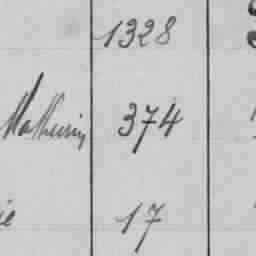 1328
Mathurin 374
ie 17